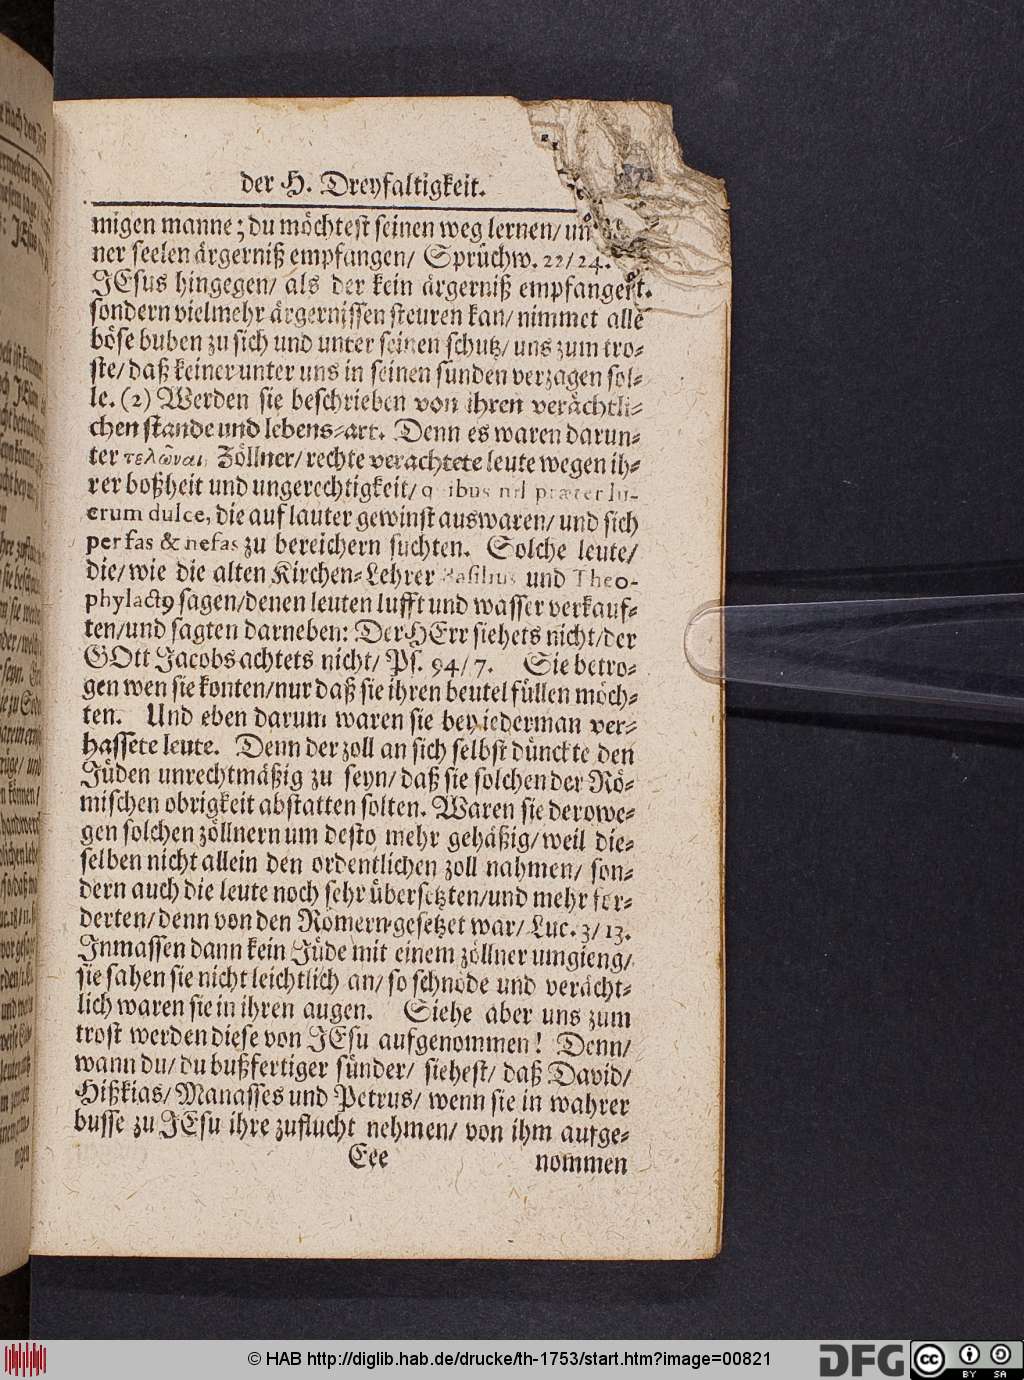 der H. Dreyfaltigkeit.
migen manne; du möchtest seinen weg lernen/ un
ner seelen ärgerniß empfangen/ Sprüchw. 22/24.
JEsus hingegen/ als der kein ärgerniß empfangen
sondern vielmehr ärgernissen steuren kan/ nimmet alle
böse buben zu sich und unter seinen schutz/ uns zum tro-
ste/ daß keiner unter uns in seinen sünden verzagen sol-
le. (2) Werden sie beschrieben von ihren verächtli-
chen stande und lebens-art. Denn es waren darun-
ter τελῶναι, Zöllner/ rechte verachtete leute wegen ih-
rer boßheit und ungerechtigkeit/ quibus nil præter lu-
crum dulce, die auf lauter gewinst aus waren/ und sich
per fas & nefas zu bereichern suchten. Solche leute/
die/ wie die alten Kirchen-Lehrer Basilius und Theo-
phylactꝯ sagen/ denen leuten lufft und wasser verkauf-
ten/ und sagten darneben: Der HErr siehets nicht/ der
GOtt Jacobs achtets nicht/ Ps. 94/ 7. Sie betro-
gen wen sie konten/ nur daß sie ihren beutel füllen möch-
ten. Und eben darum waren sie bey iederman ver-
hassete leute. Denn der zoll an sich selbst dünckte den
Jüden unrechtmäßig zu seyn/ daß sie solchen der Rö-
mischen obrigkeit abstatten solten. Waren sie derowe-
gen solchen zöllnern um desto mehr gehäßig/ weil die-
selben nicht allein den ordentlichen zoll nahmen/ son-
dern auch die leute noch sehr übersetzten/ und mehr for-
derten/ denn von den Römern gesetzet war/ Luc. 3/ 13.
Inmassen dann kein Jüde mit einem zöllner umgieng/
sie sahen sie nicht leichtlich an/ so schnöde und verächt-
lich waren sie in ihren augen. Siehe aber uns zum
trost werden diese von JEsu aufgenommen! Denn/
wann du/ du bußfertiger sünder/ siehest/ daß David/
Hißkias/ Manasses und Petrus/ wenn sie in wahrer
busse zu JEsu ihre zuflucht nehmen/ von ihm aufge-
Eee nommen
© HAB http://diglib.hab.de/drucke/th-1753/start.htm?image=00821
DFG
cc BY SA